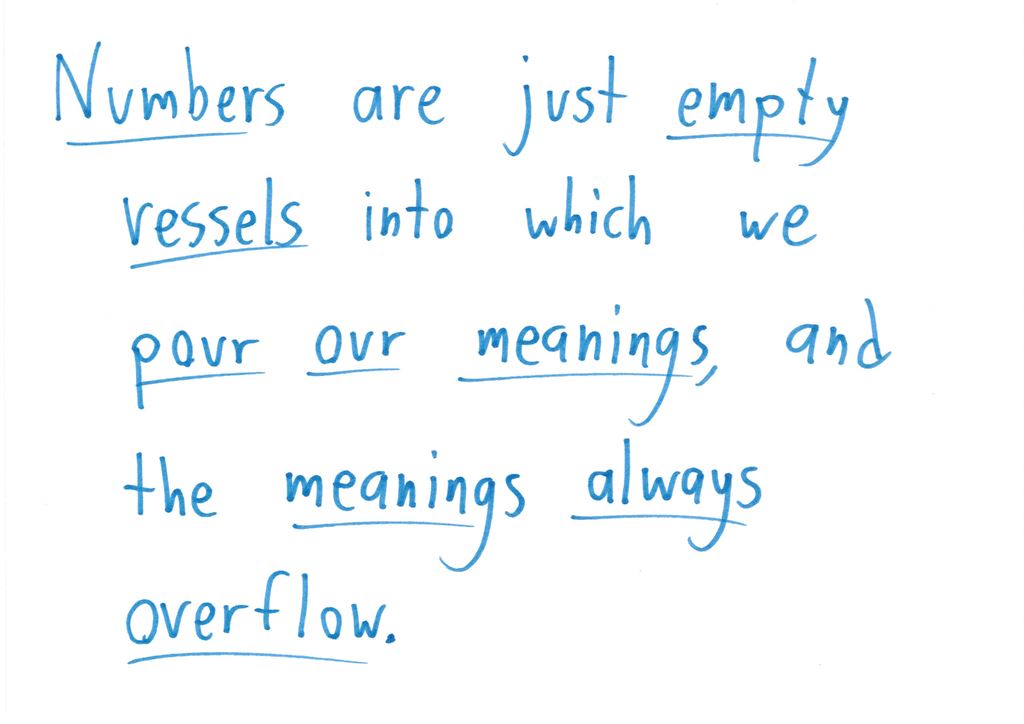 Numbers are just empty
vessels into which we
pour our meanings, and
the meanings always
overflow.